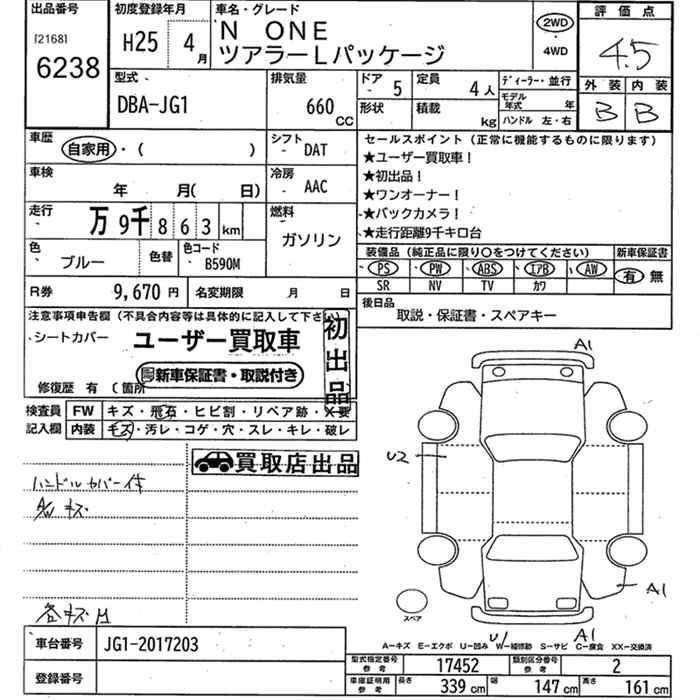 出品番号
[2168]
6238
初度登録年月
H25 4月
車名・グレード
N ONE
ツアラーLパッケージ
2WD
・
4WD
評価点
4.5
外装 内装
B B
型式
DBA-JG1
排気量
660
CC
ドア 5
形状
定員 4人
積載 kg
ディーラー・並行
モデル年式 年
ハンドル 左・右
車歴
自家用・( )
シフト
DAT
セールスポイント (正常に機能するものに限ります)
★ユーザー買取車!
★初出品!
★ワンオーナー!
★バックカメラ!
★走行距離9千キロ台
車検
年 月( 日)
冷房
AAC
走行
万 9千 8 6 3 km
燃料
ガソリン
色
ブルー
色替
色コード
B590M
装備品 (純正品に限り○をつけてください)
PS PW ABS エアB AW
SR NV TV カワ
新車保証書
有 無
R券 9,670円
名変期限 月 日
後日品
取説・保証書・スペアキー
注意事項申告欄 (不具合内容等は具体的に記入して下さい)
シートカバー
ユーザー買取車
新車保証書・取説付き
初出品
修復歴 有 (箇所
検査員
記入欄
FW キズ・飛石・ヒビ割・リペア跡・X要
内装 キズ・汚レ・コゲ・穴・スレ・キレ・破レ
買取店出品
ハンドルカバー付
A/W キズ
各キズ凹
A1
U2
A1
スペア
U1
A1
車台番号 JG1-2017203
登録番号
A―キズ E―エクボ U―凹み W―補修跡 S―サビ C―腐食 XX―交換済
型式指定番号
参考
17452
類別区分番号
参考
2
車庫証明用
参考
長さ 339cm
幅 147cm
高さ 161cm